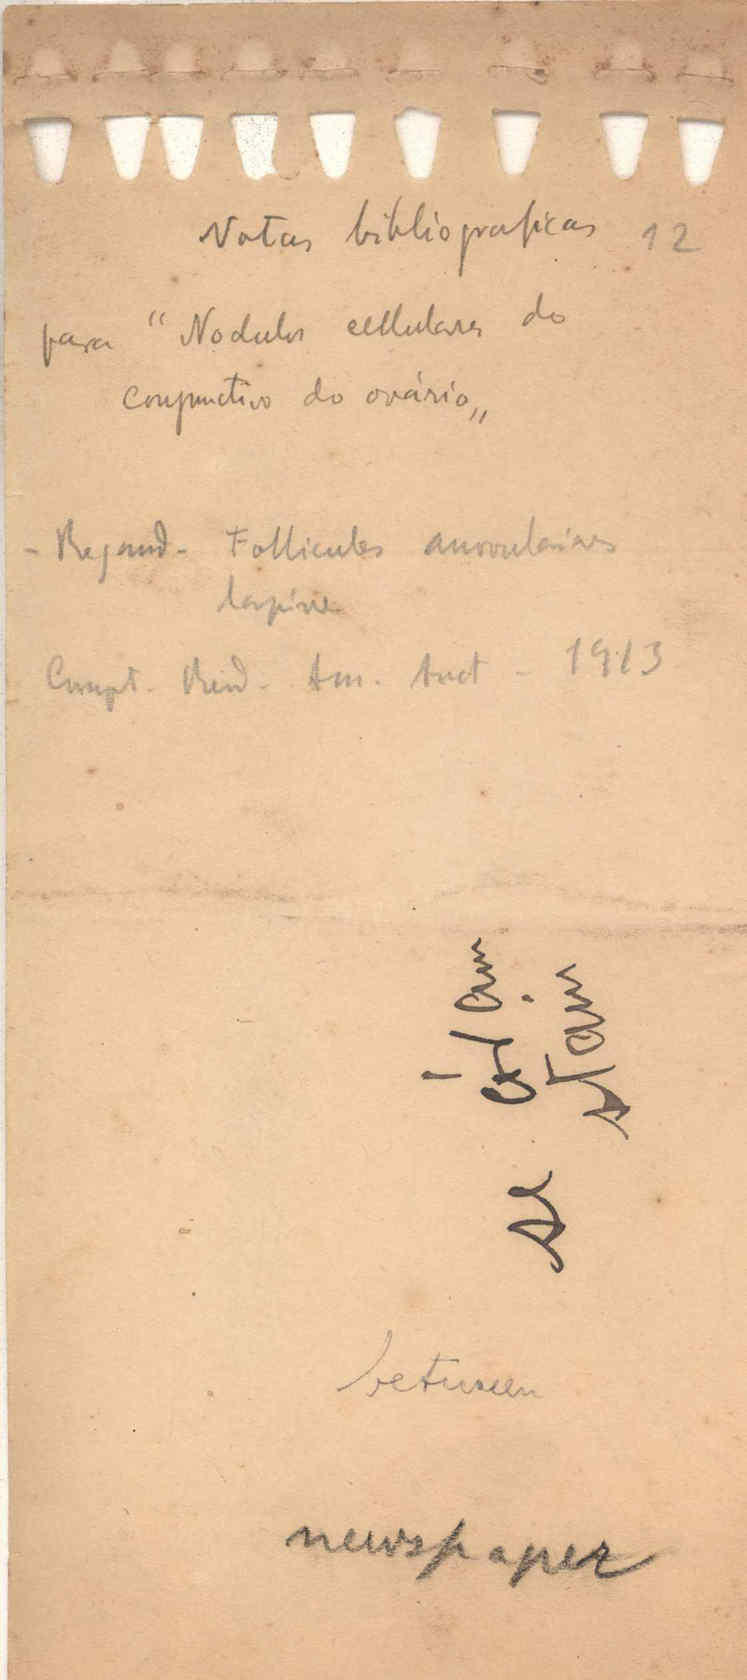 Notas bibliograficas 12
para "Nodulos cellulares do
conjunctivo do ovário"
- Regaud - Follicules anovulaires
lapine
Compt. Rend. Ass. Anat - 1913
se
stain
between
newspaper